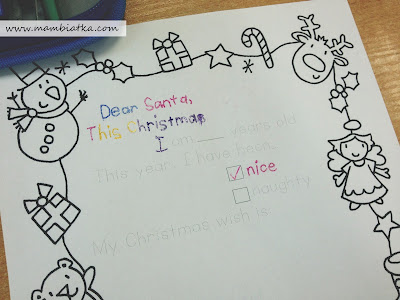 www.mambiatka.com
Dear Santa,
This Christmas
I am ___ years old
This year, I have been...
nice
naughty
My Christmas wish is